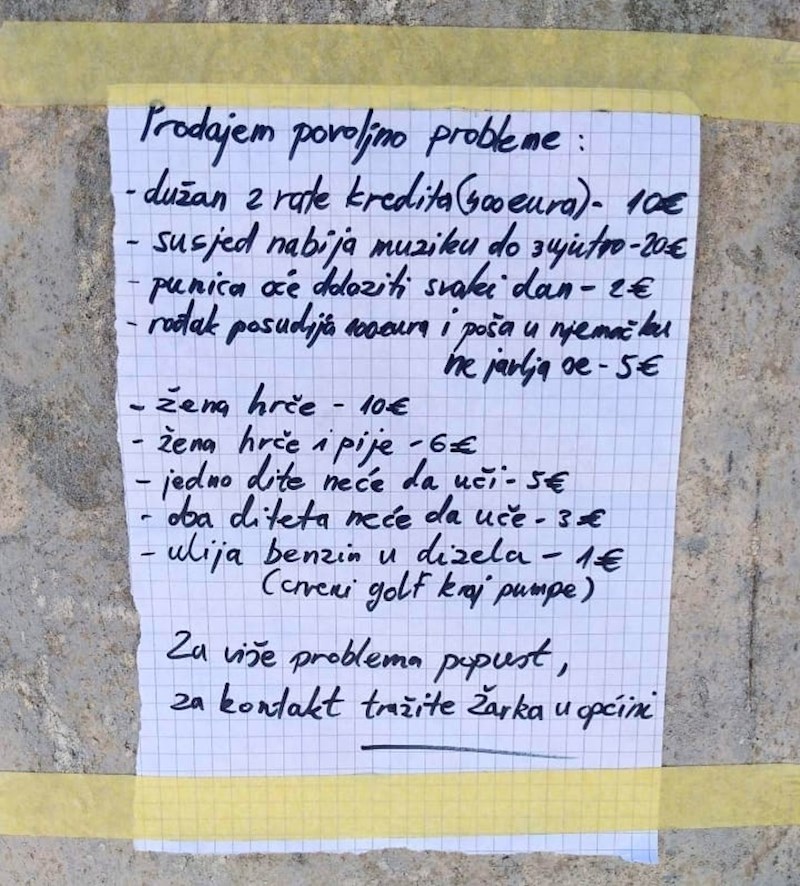 Prodajem povoljno probleme:
- dužan 2 rate kredita (400 eura) - 10€
- susjed nabija muziku do 3 ujutro - 20€
- punica oće dolaziti svaki dan - 2€
- rođak posudija 100 eura i poša u njemačku
ne javlja se - 5€
- žena hrče - 10€
- žena hrče i pije - 6€
- jedno dite neće da uči - 5€
- oba diteta neće da uče - 3€
- ulija benzin u dizela - 1€
(crveni golf kraj pumpe)
Za više problema popust,
za kontakt tražite Žarka u općini